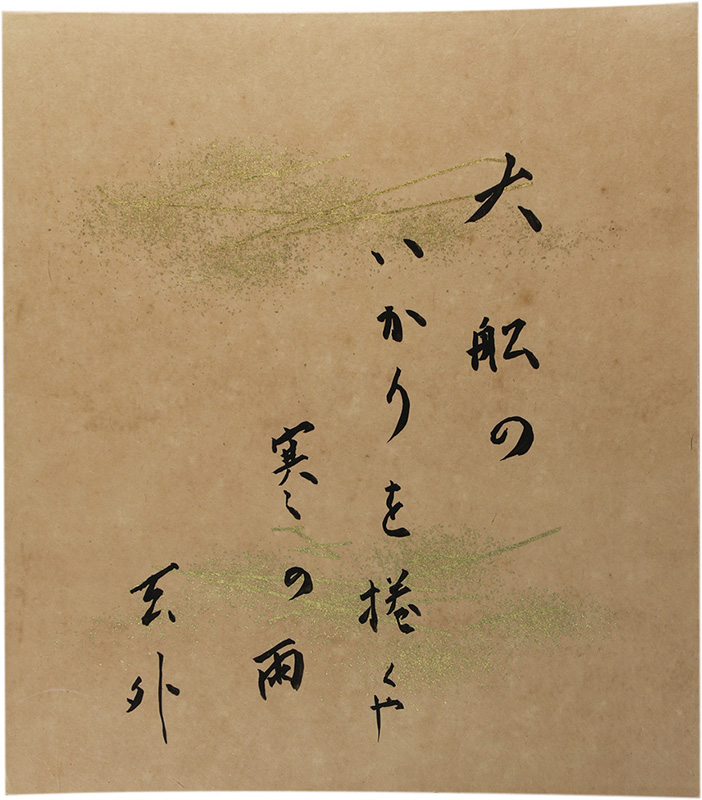 大舩の
いかりを捲くや
寒の雨
玄外